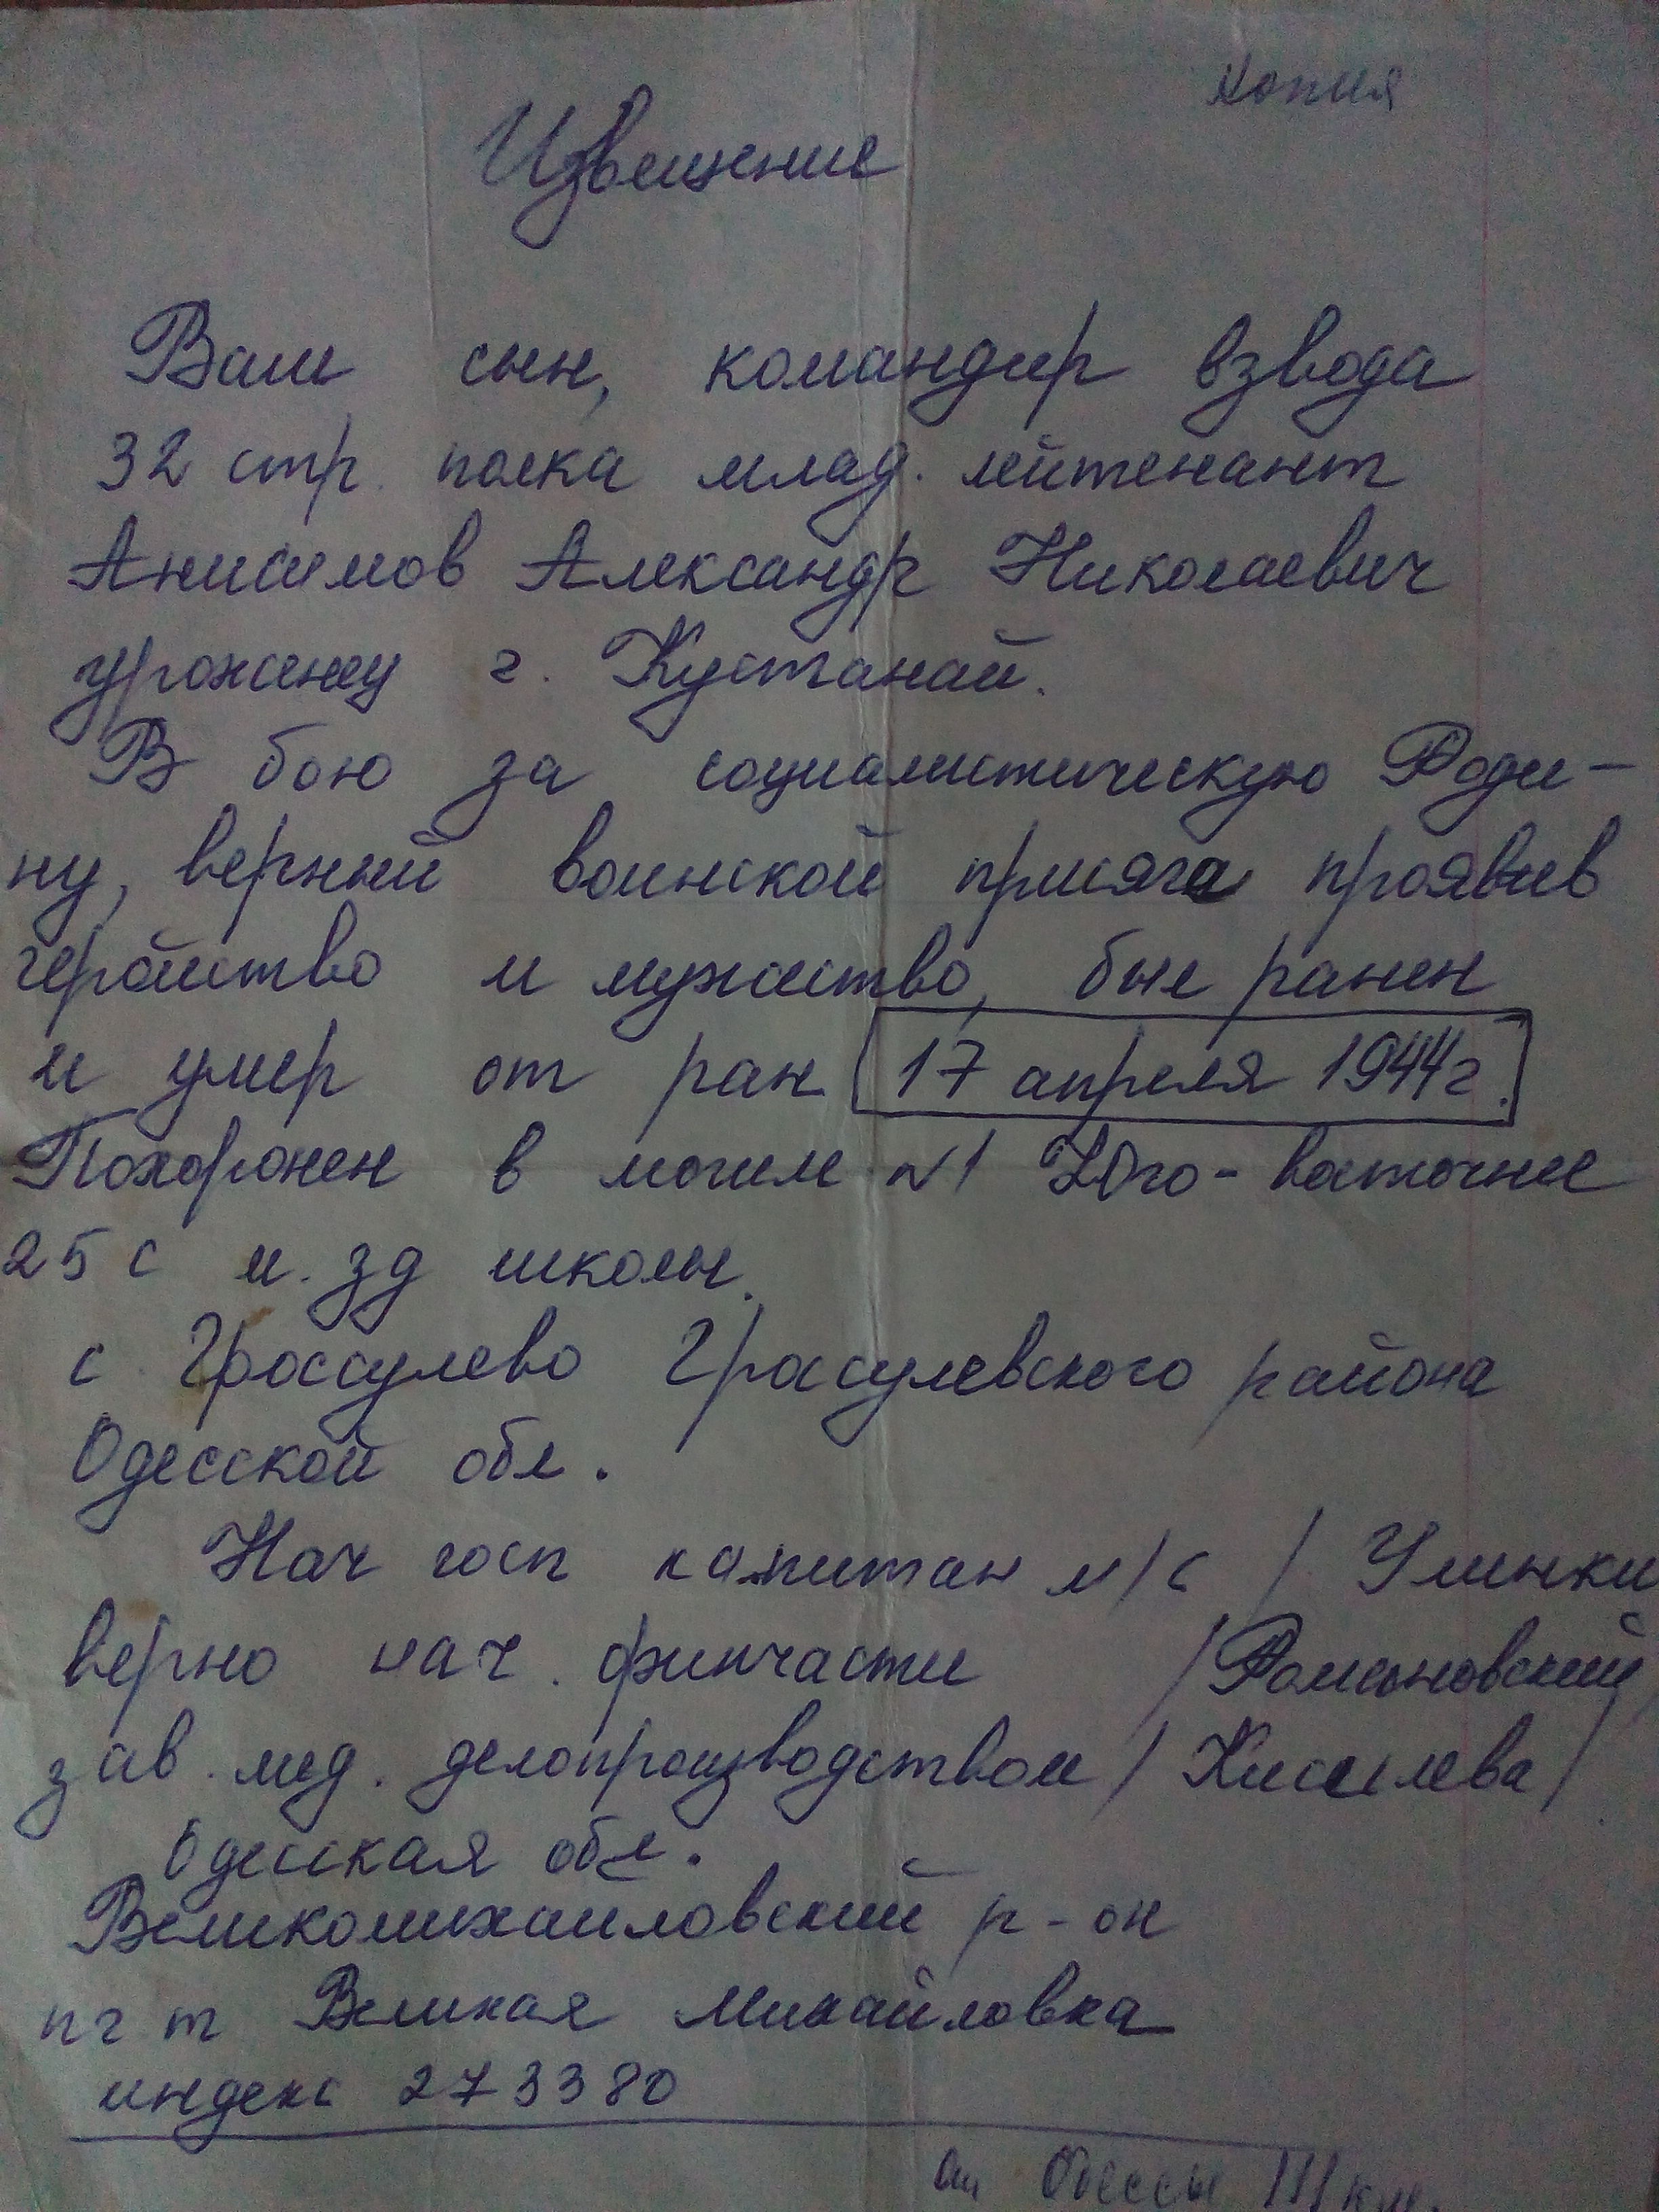 Копия
Извещение
Ваш сын, командир взвода
32 стр. полка млад. лейтенант
Анисимов Александр Николаевич
уроженец г. Кустанай.
В бою за социалистическую Роди-
ну, верный воинской присяге проявив
геройство и мужество, был ранен
и умер от ран 17 апреля 1944г.
Похоронен в могиле №1 Юго-восточнее
25 с м. зд школы.
с. Гроссулево Гроссулевского района
Одесской обл.
Нач госп капитан м/с / Улинки
верно нач. финчасти /Романовский/
зав. мед. делопроизводством /Киселева/
Одесская обл.
Великомихайловский р-он
пгт Великая Михайловка
индекс 273380
от Одессы 111 км.